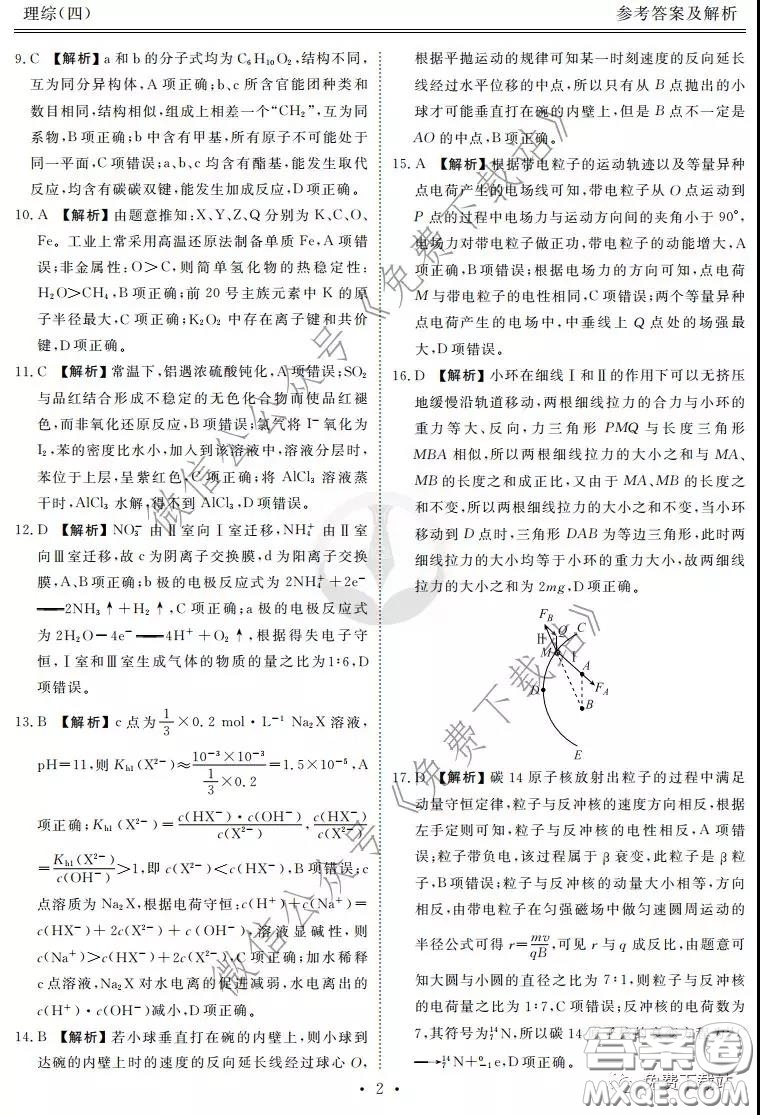 理综(四)
参考答案及解析
9.C 【解析】a和b的分子式均为C₆H₁₀O₂,结构不同,
互为同分异构体,A项正确;b、c所含官能团种类和
数目相同,结构相似,组成上相差一个“CH₂”,互为同
系物,B项正确;b中含有甲基,所有原子不可能处于
同一平面,C项错误;a、b、c均含有酯基,能发生取代
反应,均含有碳碳双键,能发生加成反应,D项正确。
10.A 【解析】由题意推知:X、Y、Z、Q分别为K、C、O、
Fe。工业上常采用高温还原法制备单质Fe,A项错
误;非金属性:O>C,则简单氢化物的热稳定性:
H₂O>CH₄,B项正确;前20号主族元素中K的原
子半径最大,C项正确;K₂O₂中存在离子键和共价
键,D项正确。
11.C 【解析】常温下,铝遇浓硫酸钝化,A项错误;SO₂
与品红结合形成不稳定的无色化合物而使品红褪
色,而非氧化还原反应,B项错误;氯气将I⁻氧化为
I₂,苯的密度比水小,加入到该溶液中,溶液分层时,
苯位于上层,呈紫红色,C项正确;将AlCl₃溶液蒸
干时,AlCl₃水解,得不到AlCl₃,D项错误。
12.D 【解析】NO₃⁻由Ⅱ室向Ⅰ室迁移,NH₄⁺由Ⅱ室
向Ⅲ室迁移,故c为阴离子交换膜,d为阳离子交换
膜,A、B项正确;b极的电极反应式为2NH₄⁺+2e⁻
══2NH₃↑+H₂↑,C项正确;a极的电极反应式
为2H₂O-4e⁻══4H⁺+O₂↑,根据得失电子守
恒,Ⅰ室和Ⅲ室生成气体的物质的量之比为1:6,D
项错误。
13.B 【解析】c点为1/3×0.2 mol·L⁻¹ Na₂X溶液,
pH=11,则K_h1(X²⁻)≈(10⁻³×10⁻³)/(1/3×0.2)=1.5×10⁻⁵,A
项正确;K_h1(X²⁻)=c(HX⁻)·c(OH⁻)/c(X²⁻),c(HX⁻)/c(X²⁻)
=K_h1(X²⁻)/c(OH⁻)>1,即c(X²⁻)<c(HX⁻),B项错误;c
点溶质为Na₂X,根据电荷守恒:c(H⁺)+c(Na⁺)=
c(HX⁻)+2c(X²⁻)+c(OH⁻),溶液显碱性,则
c(Na⁺)>c(HX⁻)+2c(X²⁻),C项正确;加水稀释
c点溶液,Na₂X对水电离的促进减弱,水电离出的
c(H⁺)·c(OH⁻)减小,D项正确。
14.B 【解析】若小球垂直打在碗的内壁上,则小球到
达碗的内壁上时的速度的反向延长线经过球心O,
根据平抛运动的规律可知某一时刻速度的反向延长
线经过水平位移的中点,所以只有从B点抛出的小
球才可能垂直打在碗的内壁上,但是B点不一定是
AO的中点,B项正确。
15.A 【解析】根据带电粒子的运动轨迹以及等量异种
点电荷产生的电场线可知,带电粒子从O点运动到
P点的过程中电场力与运动方向间的夹角小于90°,
电场力对带电粒子做正功,带电粒子的动能增大,A
项正确,B项错误;根据电场力的方向可知,点电荷
M与带电粒子的电性相同,C项错误;两个等量异种
点电荷产生的电场中,中垂线上Q点处的场强最
大,D项错误。
16.D 【解析】小环在细线Ⅰ和Ⅱ的作用下可以无挤压
地缓慢沿轨道移动,两根细线拉力的合力与小环的
重力等大、反向,力三角形PMQ与长度三角形
MBA相似,所以两根细线拉力的大小之和与MA、
MB的长度之和成正比,又由于MA、MB的长度之
和不变,所以两根细线拉力的大小之和不变,当小环
移动到D点时,三角形DAB为等边三角形,此时两
细线拉力的大小均等于小环的重力大小,故两细线
拉力的大小之和为2mg,D项正确。
F_B
Q
C
Ⅱ
M
Ⅰ
A
F_A
D
B
E
17.D 【解析】碳14原子核放射出粒子的过程中满足
动量守恒定律,粒子与反冲核的速度方向相反,根据
左手定则可知,粒子与反冲核的电性相反,A项错
误;粒子带负电,该过程属于β衰变,此粒子是β粒
子,B项错误;粒子与反冲核的动量大小相等,方向
相反,由带电粒子在匀强磁场中做匀速圆周运动的
半径公式可得r=mv/qB,可见r与q成反比,由题意可
知大圆与小圆的直径之比为7:1,则粒子与反冲核
的电荷量之比为1:7,C项错误;反冲核的电荷数为
7,其符号为¹⁴₇N,所以碳14
→¹⁴₇N+⁰₋₁e,D项正确。
·2·
微信公众号《免费下载站》
微信公众号《免费下载站》
答案圈
免费下载站